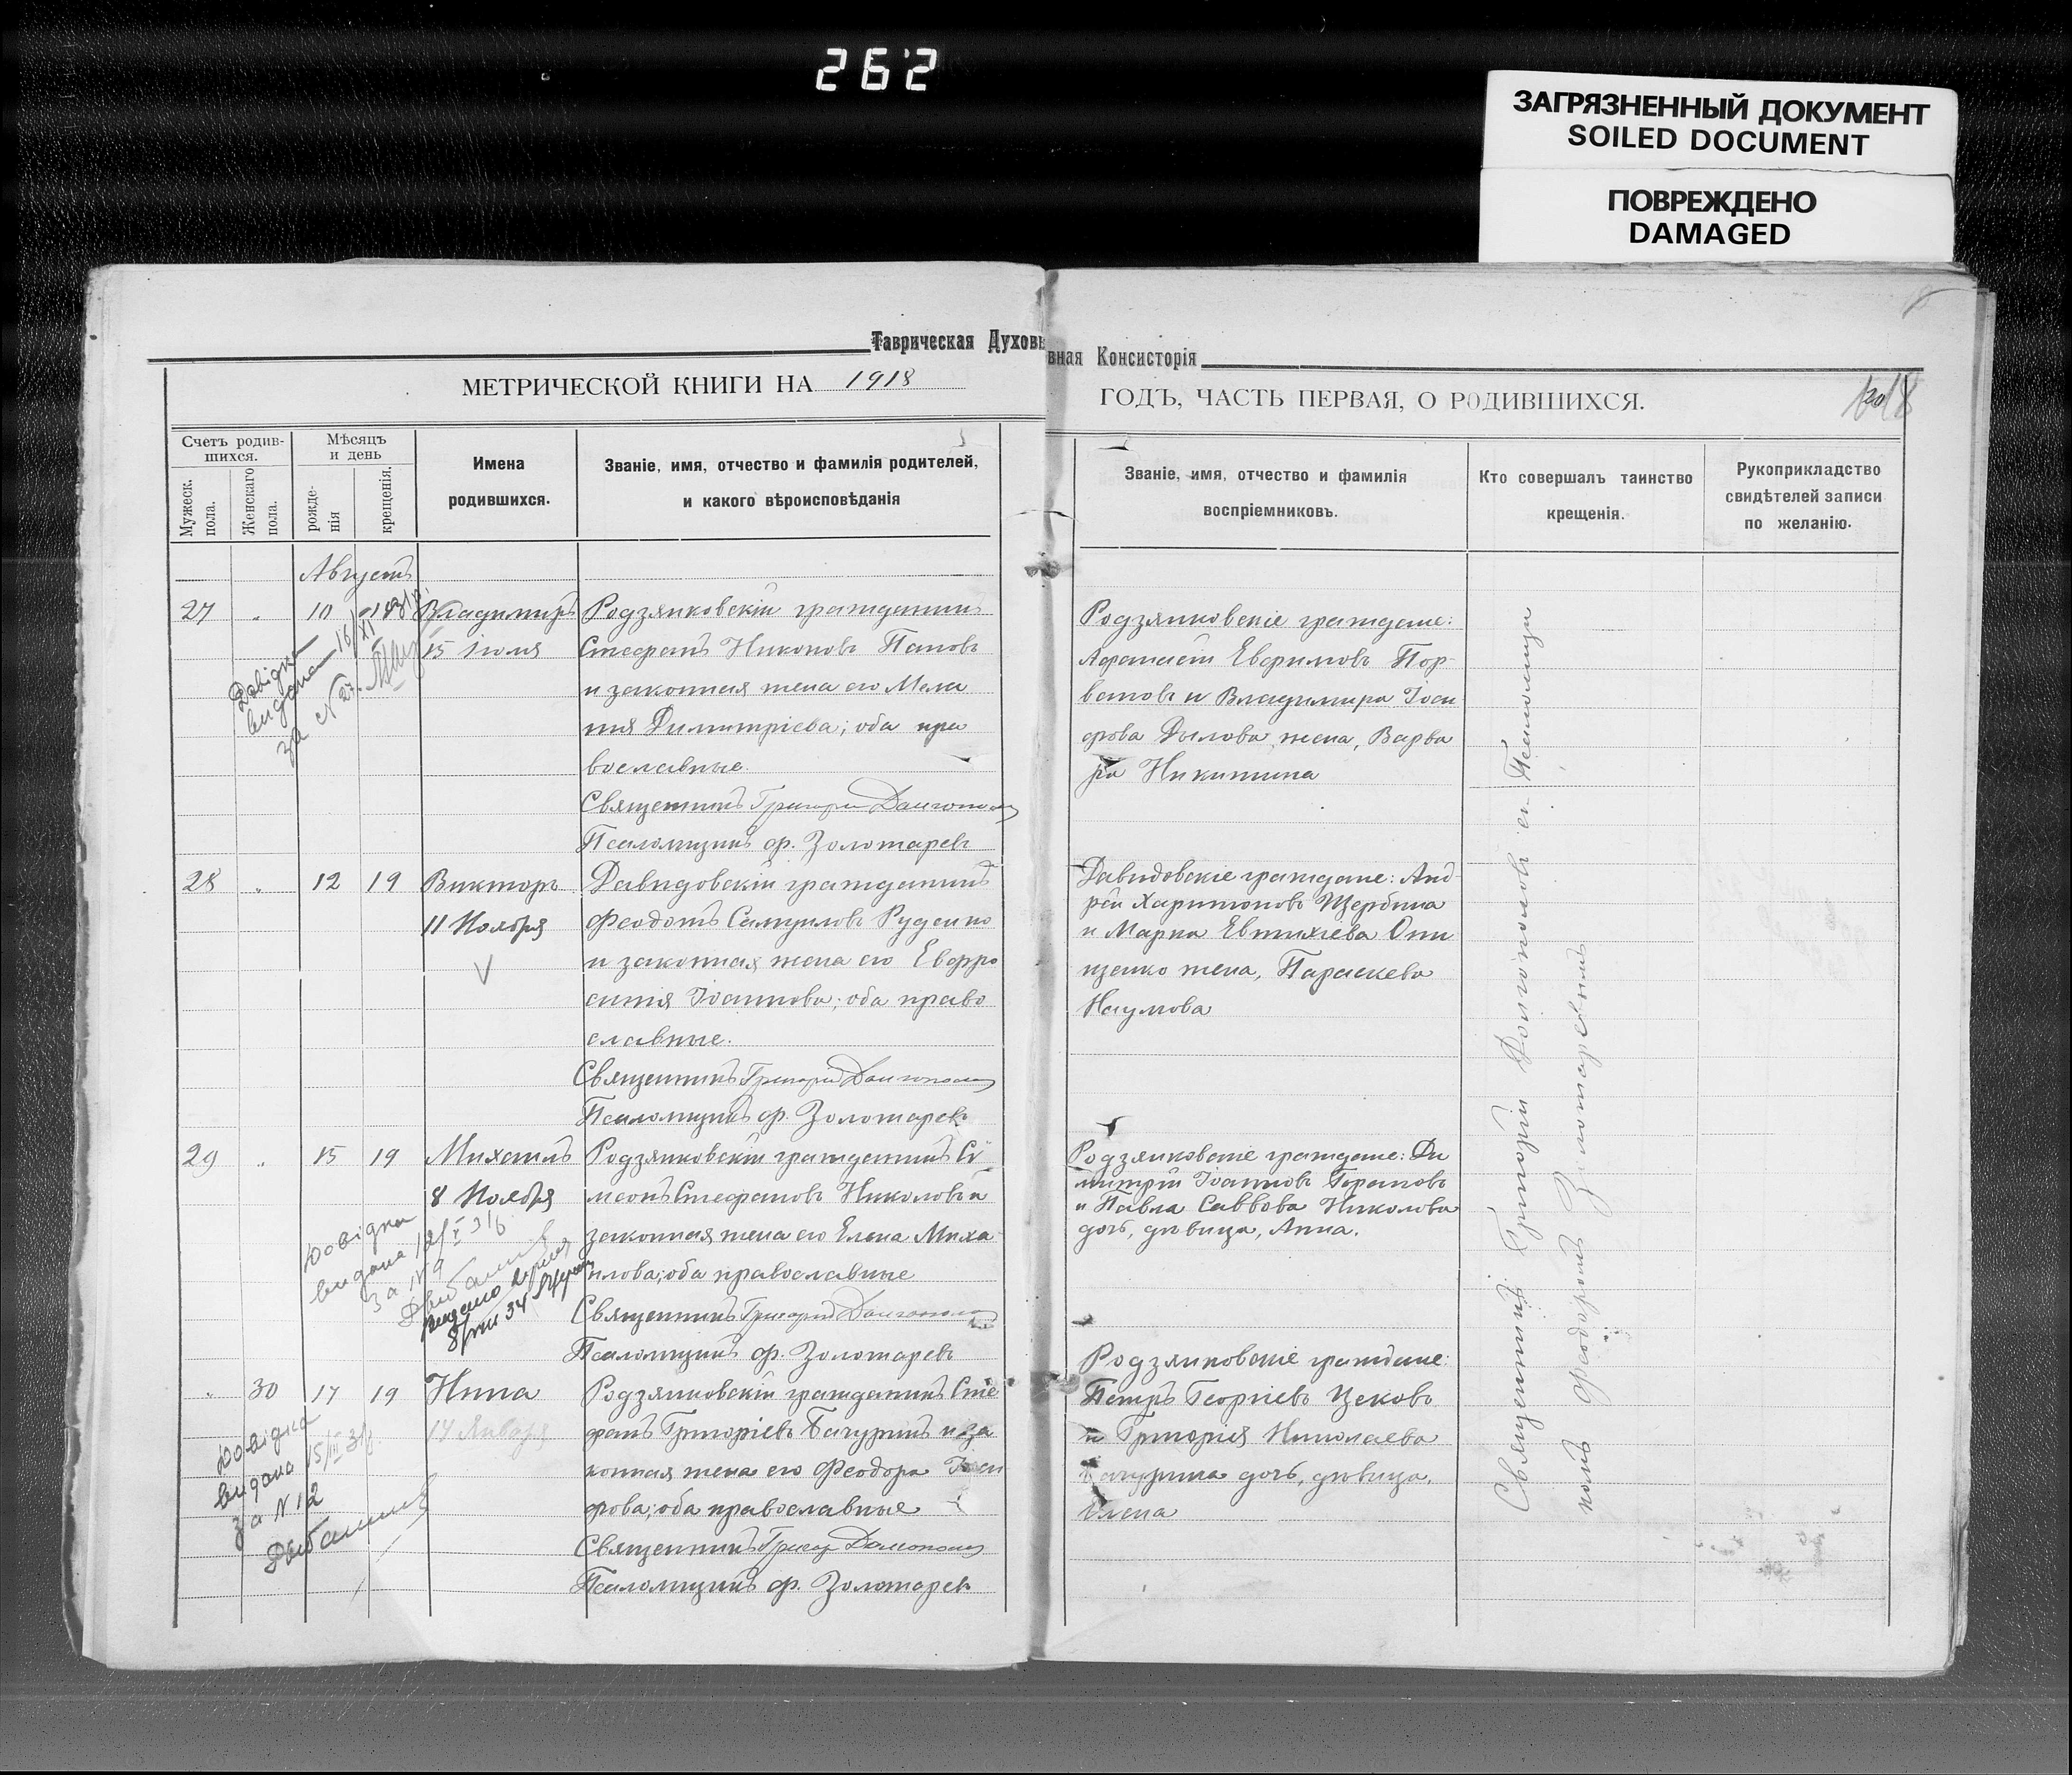 262
ЗАГРЯЗНЕННЫЙ ДОКУМЕНТ
SOILED DOCUMENT
ПОВРЕЖДЕНО
DAMAGED
Таврическая Духовная Консисторія
МЕТРИЧЕСКОЙ КНИГИ НА 1918
ГОДЪ, ЧАСТЬ ПЕРВАЯ, О РОДИВШИХСЯ.
Счетъ родив-
шихся.
Мужеск. пола.
Женскаго пола.
Мѣсяцъ
и день
рожде-
нія
крещенія.
Имена
родившихся.
Званіе, имя, отчество и фамилія родителей,
и какого вѣроисповѣданія
Званіе, имя, отчество и фамилія
воспріемниковъ.
Кто совершалъ таинство
крещенія.
Рукоприкладство
свидѣтелей записи
по желанію.
Августъ
27 " 10 Владимиръ
15 Іюля
Родзянковскій гражданинъ
Стефанъ Никоновъ Поповъ
и законная жена его Мела
нія Димитріева; оба пра
вославные.
Священникъ Григорій Долгополов
Псаломщикъ Ф. Золотаревъ
Довідка
видана
за № 27.
Родзянковскіе граждане:
Афанасій Евфимовъ
и Владимира Іоси
фова Дылова жена, Варва
ра Никитина
28 " 12 19 Викторъ
11 Ноября
V
Давидовскій гражданинъ
Феодотъ Самуиловъ Руденко
и законная жена его Евфро
синія Іоаннова; оба право
славные.
Священникъ Григорій Долгополов
Псаломщикъ Ф. Золотаревъ
Давидовскіе граждане: Анд
рей Харитоновъ Щербина
и Марка Евтихіева Они
щенко жена, Параскева
Наумова
29 " 15 19 Михаилъ
8 Ноября
Родзянковскій гражданинъ Сѵ
меонъ Стефановъ Николовъ и
законная жена его Елена Миха
илова; оба православные
Священникъ Григорій Долгополов
Псаломщикъ Ф. Золотаревъ
Довідка
видана
за № 9
Родзянковскіе граждане: Ди
митрій Іоанновъ
и Павла Саввова Николова
дочь, дѣвица, Анна.
" 30 17 19 Нина
14 Января
Родзянковскій гражданинъ Сте
фанъ Григоріевъ Бачуринъ и за
конная жена его Феодора Іоси
фова; оба православные
Священникъ Григор Долгополов
Псаломщикъ Ф. Золотаревъ
Довідка
видана
за № 12
Родзянковскіе граждане:
Петръ Георгіевъ Цековъ
и Григорія Николаева
Бачурина дочь, дѣвица,
Елена
Священникъ Григорій Долгополовъ съ Псаломщи
комъ Феодоромъ Золотаревымъ